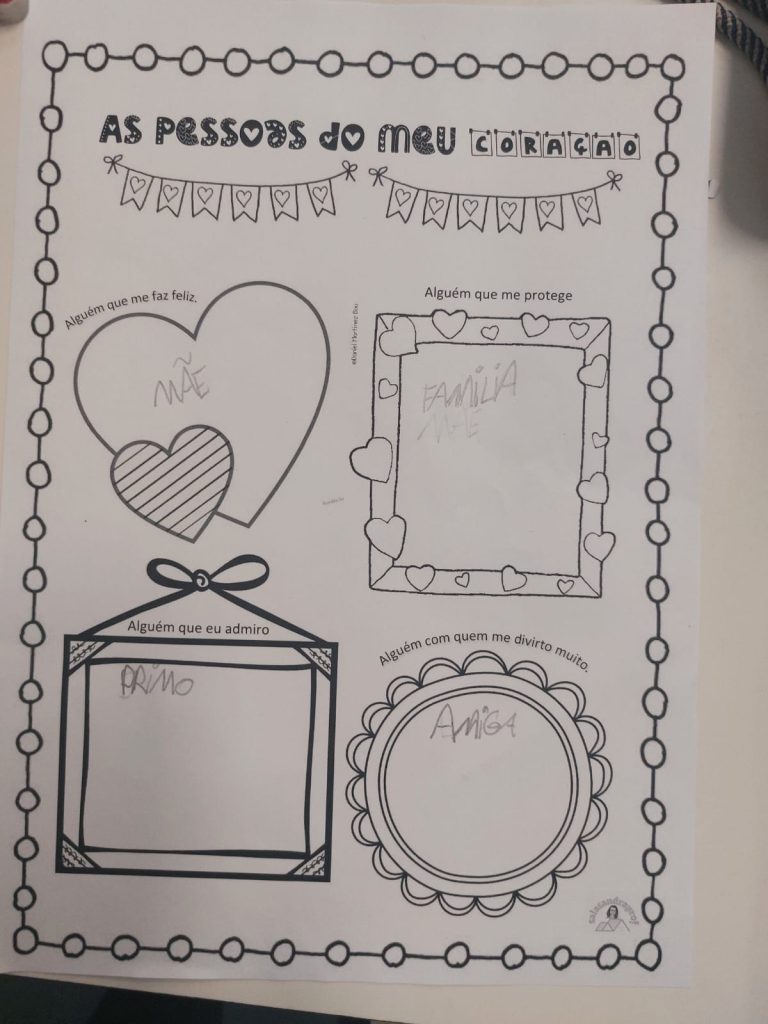 AS PESSOAS DO MEU CORAÇAO
Alguém que me faz feliz.
MÃE
©Daniel Martinez Bou
Alguém que me protege
FAMILIA
MÃE
Alguém que eu admiro
PRIMO
Alguém com quem me divirto muito.
AMIGA
salasandraprof